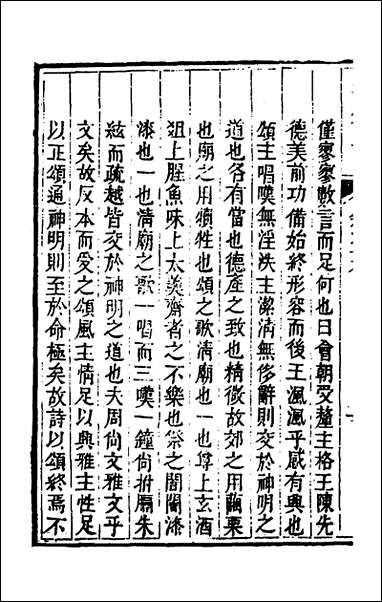 僅寥寥數言而足何也曰會朝受釐主格王陳先
德美前功備始終形容而後王渢渢乎感有興也
頌主唱嘆無淫泆主潔清無侈辭則交於神明之
道也各有當也德產之致也精微故郊之用繭栗
也廟之用犢牲也頌之歌清廟也一也尊上玄酒
俎上腥魚味上太羹齋者之不樂也祭之闇闇漆
漆也一也清廟之歌一唱而三嘆一鐘尚拊膈朱
絃而疏越皆交於神明之道也夫周尚文雅文乎
文矣故反本而受之頌風主情足以興雅主性足
以正頌通神明則至於命極矣故詩以頌終焉不